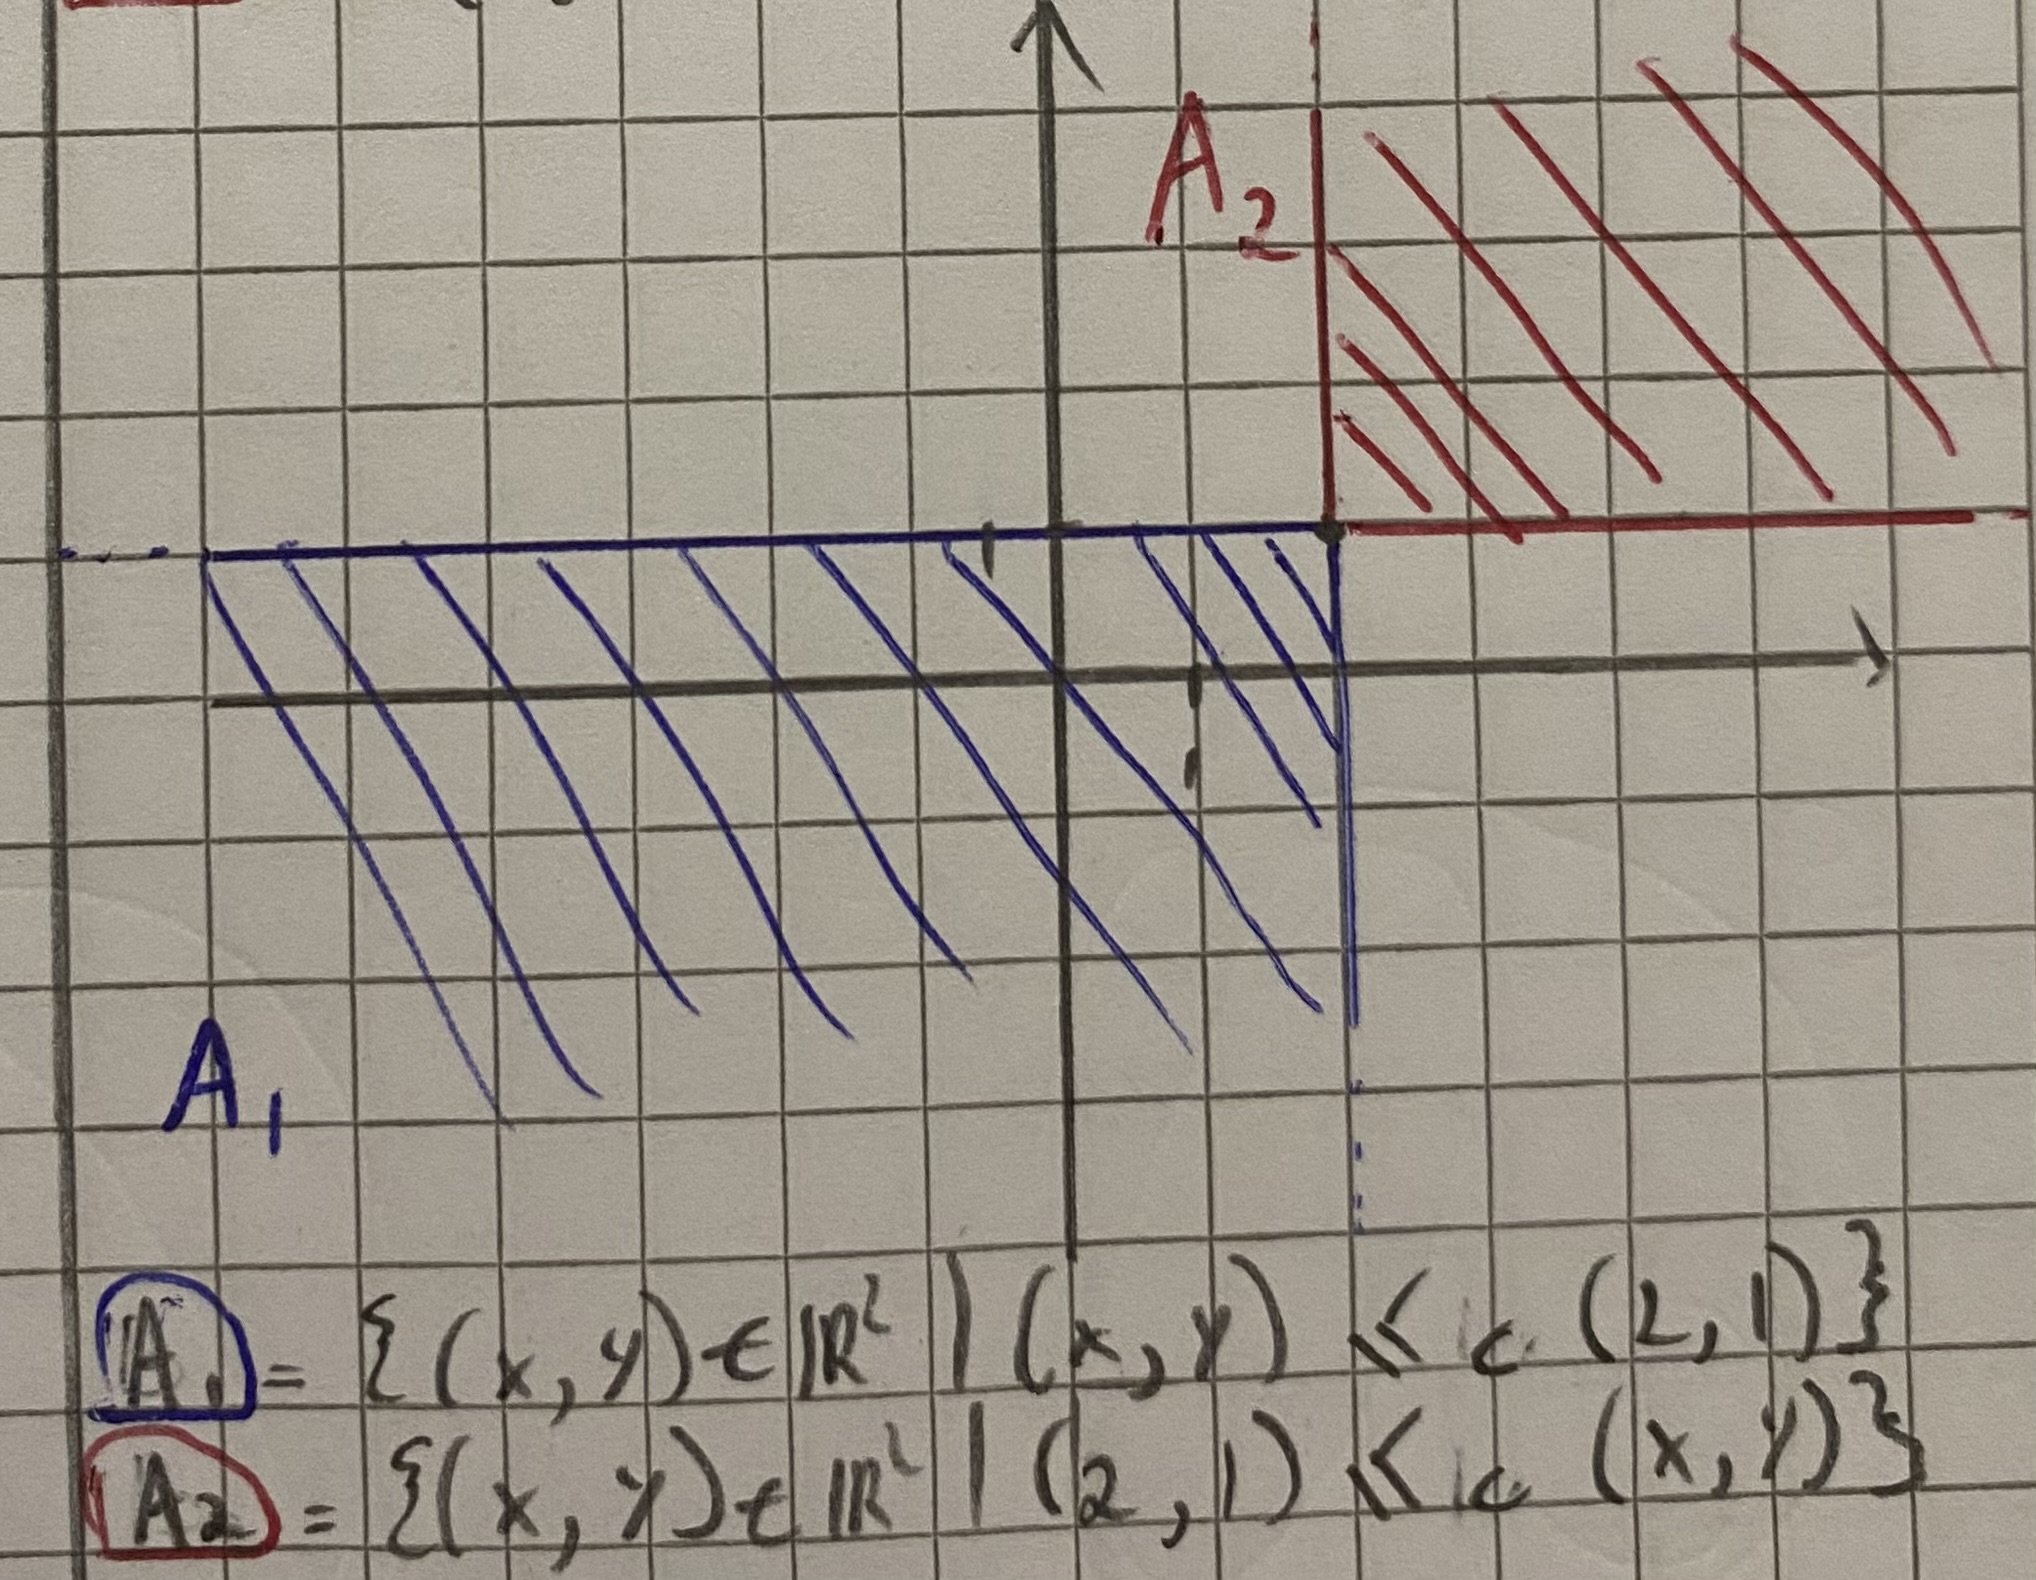 A₂
A₁
A₁ = {(x, y) ∈ ℝ² | (x, y) ≤ c (2, 1)}
A₂ = {(x, y) ∈ ℝ² | (2, 1) ≤ c (x, y)}